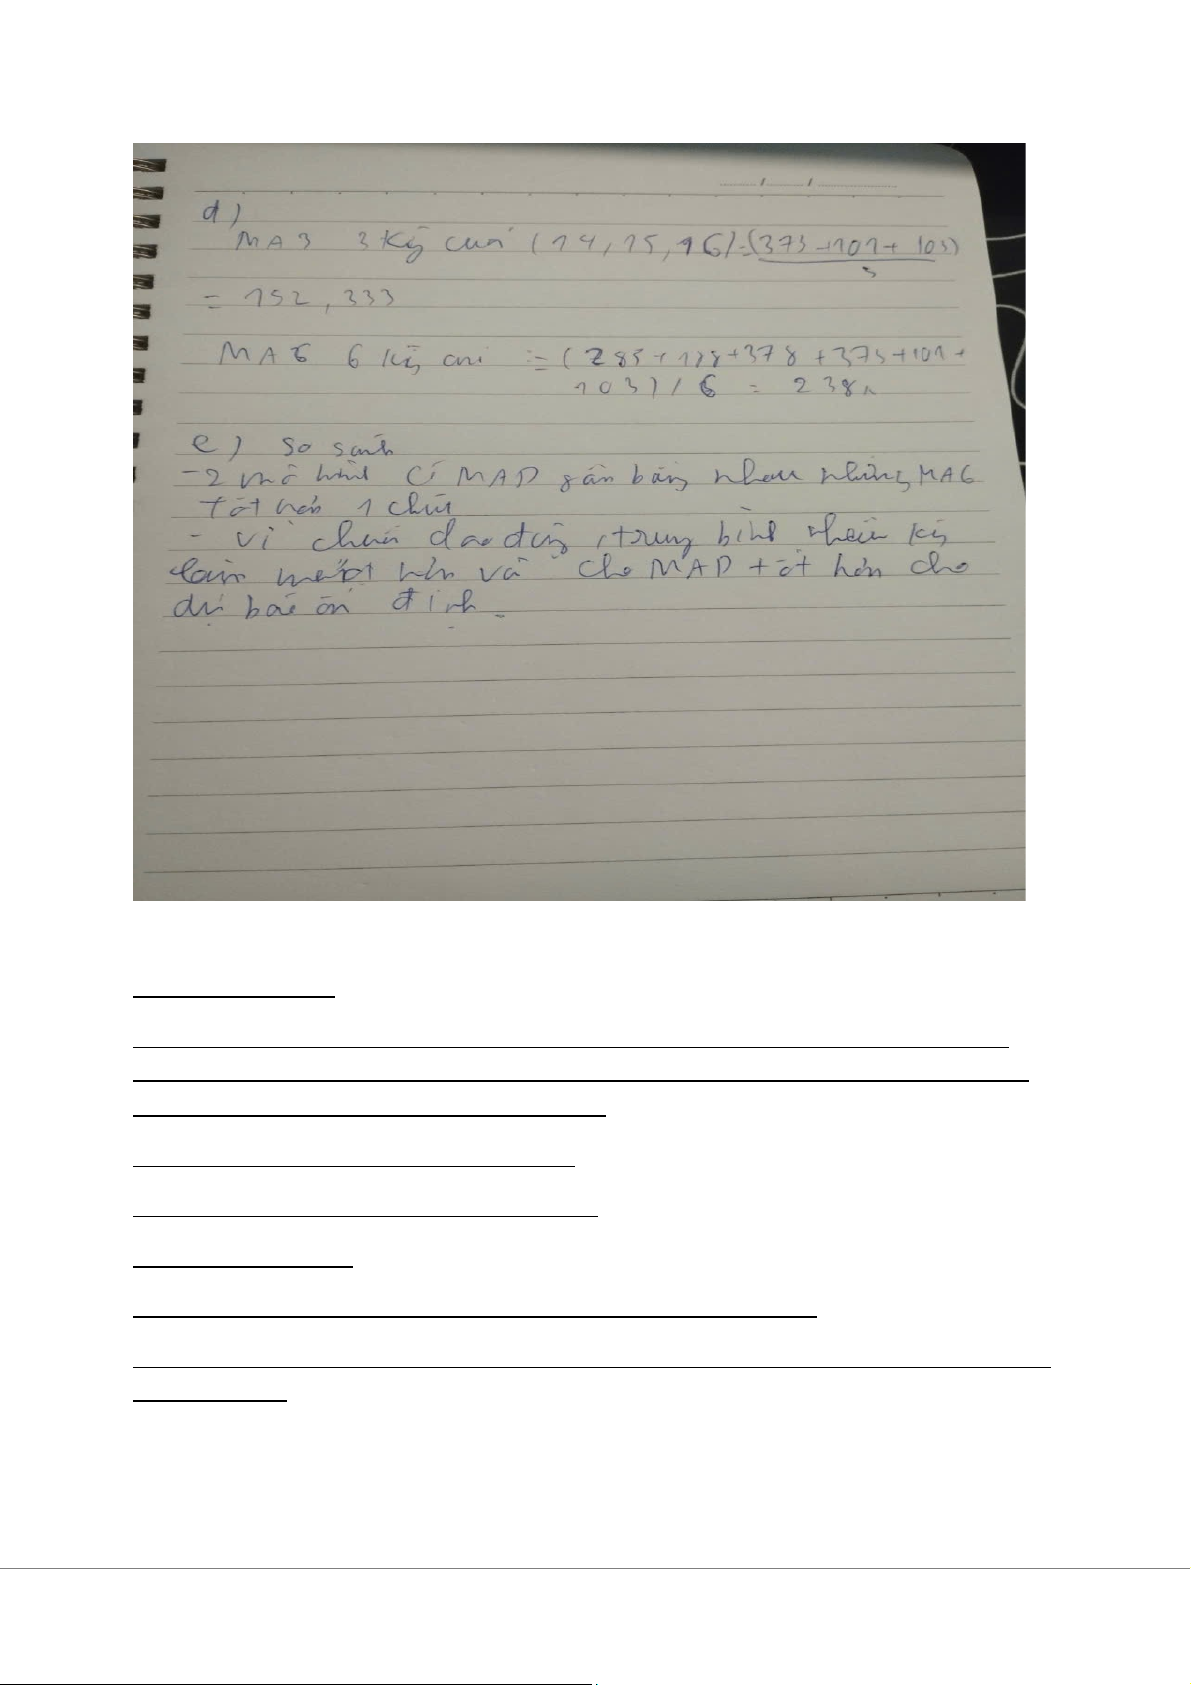 d)
MA3 3 Kỳ cuối (14, 15, 16) = (373+101+103)
3
= 192,333
MA6 6 kỳ cuối = (285+128+378+373+101+
103) / 6 = 238,
e) So sánh
- 2 mô hình có MAD gần bằng nhau nhưng MA6
tốt hơn 1 chút
- vì chuỗi dao động, trung bình nhiều kỳ
làm mượt hơn và cho MAD tốt hơn cho
dự báo ổn định